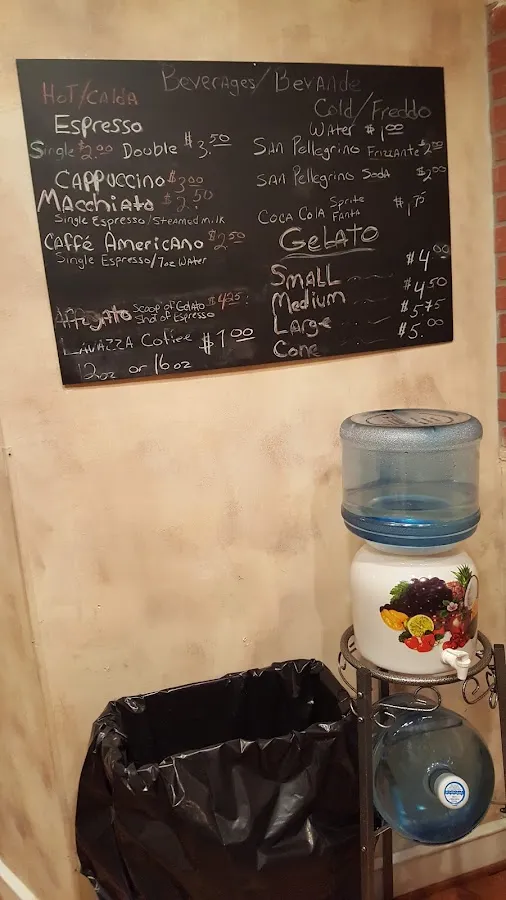 Beverages/Bevande
Hot/Calda
Espresso
Single $2.00 Double $3.50
Cappuccino $3.00
Macchiato $2.50
Single Espresso/Steamed milk
Caffé Americano $2.50
Single Espresso/7oz Water
Affogato Scoop of Gelato $4.25
Shot of Espresso
Lavazza Coffee $1.00
12oz or 16oz
Cold/Freddo
Water $1.00
San Pellegrino Frizzante $2.00
San Pellegrino Soda $2.00
Coca Cola Sprite $1.75
Fanta
Gelato
Small $4.00
Medium $4.50
Large $5.75
Cone $5.00